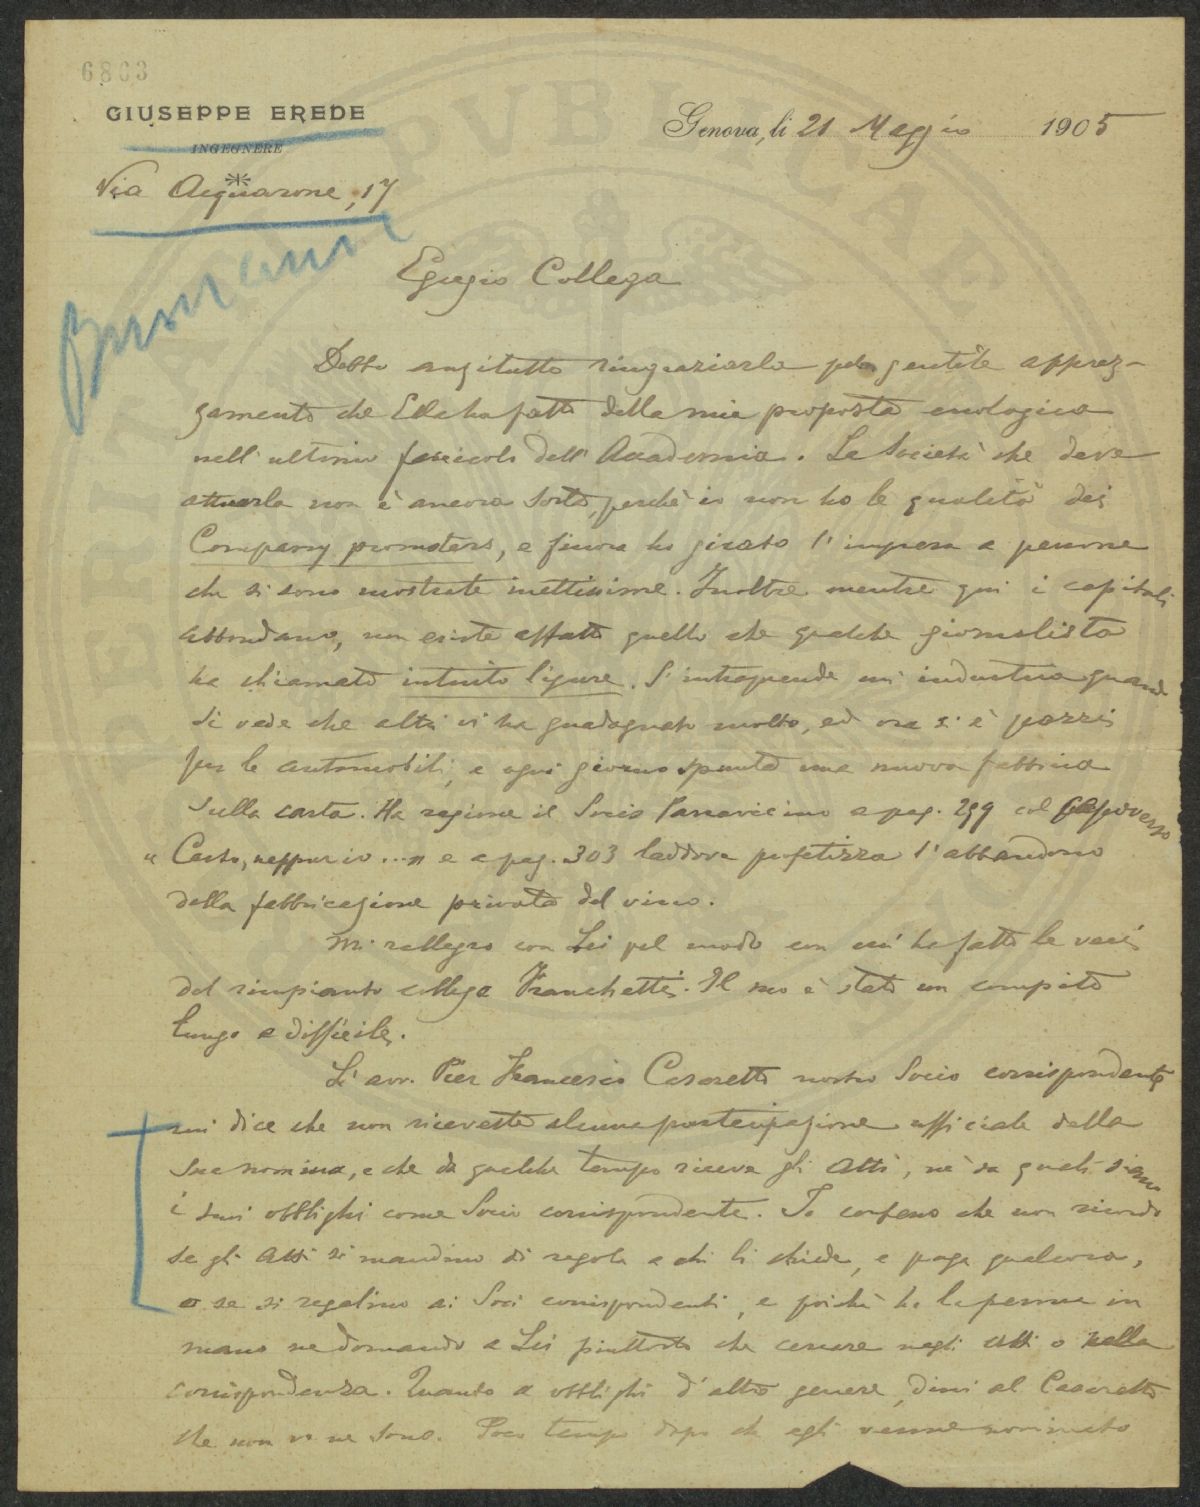 6803
GIUSEPPE EREDE
INGEGNERE
Via Acquarone, 17
Genova, li 21 Maggio 1905
Egregio Collega
Debbo anzitutto ringraziarla pel gentile apprez-
zamento che Ella ha fatto della mia proposta enologica
nell'ultimo fascicolo dell'Accademia. La Società che deve
attuarla non è ancora sorta, perchè io non ho le qualità dei
Company promoters, e finora ho girato l'impresa a persone
che si sono mostrate inettissime. Inoltre mentre qui i capitali
abbondano, non esiste affatto quello che qualche giornalista
ha chiamato intuito ligure. S'intraprende un'industria quando
si vede che altri vi ha guadagnato molto, ed ora si è pazzi
per le automobili, e ogni giorno spunta una nuova fabbrica
sulla carta. Ha ragione il Socio Parravicino a pag. 299 col capoverso
"Certo, neppur io ..." e a pag. 303 laddove profetizza l'abbandono
della fabbricazione privata del vino.
Mi rallegro con Lei pel modo con cui ha fatto le veci
del rimpianto collega Franchetti. Il suo è stato un compito
lungo e difficile.
L'avv. Pier Francesco Casaretto nostro Socio corrispondente
mi dice che non ricevette alcuna partecipazione ufficiale della
sua nomina, e che da qualche tempo riceve gli Atti, nè sa quali siano
i suoi obblighi come Socio corrispondente. Io confesso che non ricordo
se gli Atti si mandino di regola a chi li chiede, e paga qualcosa,
o se si regalino ai Soci corrispondenti, e poichè ho la penna in
mano ne domando a Lei piuttosto che cercare negli Atti o nella
corrispondenza. Quanto a obblighi d'altro genere, dissi al Casaretto
che non ve ne sono. Poco tempo dopo che egli venne nominato